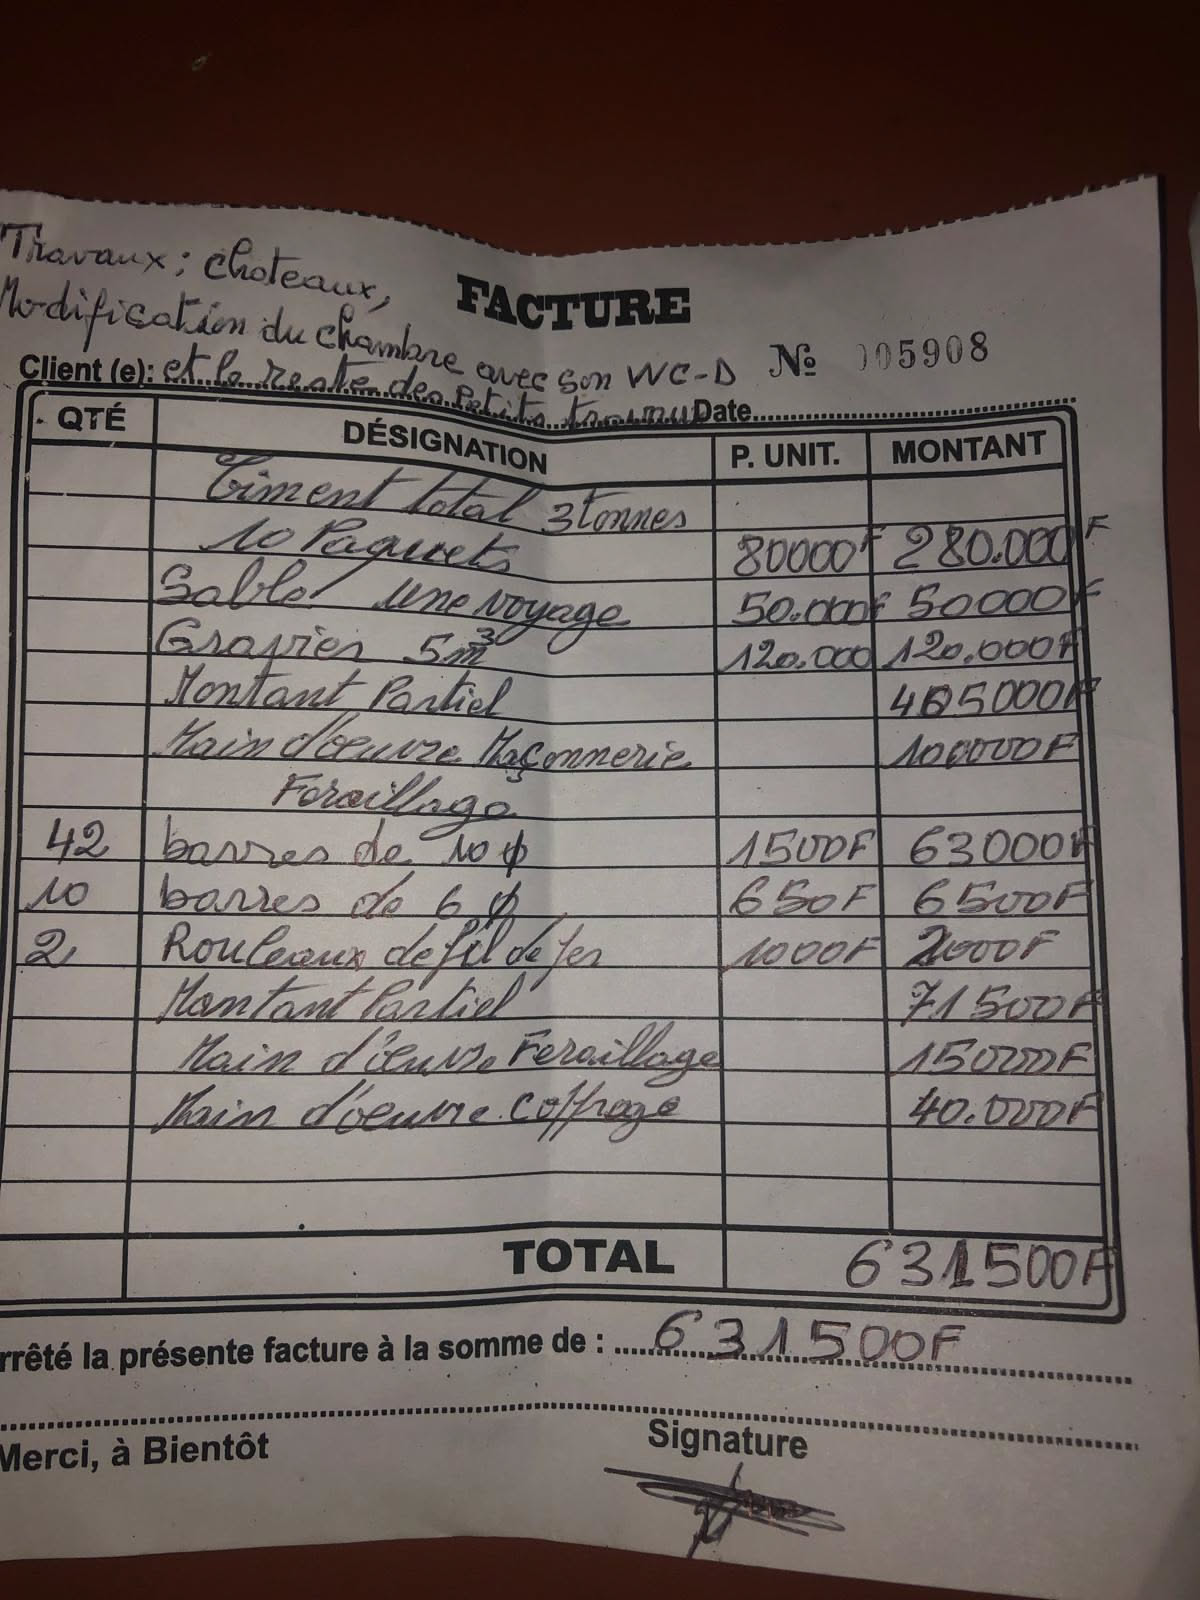 Travaux ; Choteaux,
Modification du chambre avec son WC-D
FACTURE
№ 005908
Client (e): et le reste des Petits travaux Date
QTÉ DÉSIGNATION P. UNIT. MONTANT
Ciment total 3 tonnes
10 Paquets 80000F 280.000F
Sable une voyage 50.000F 50000F
Gravier 5m³ 120.000 120.000F
Montant Partiel 405000F
Main d'oeuvre Maçonnerie 100000F
Feraillage
42 barres de 10 ϕ 1500F 63000F
10 barres de 6 ϕ 650F 6500F
2 Rouleaux de fil de fer 1000F 2000F
Montant Partiel 71500F
Main d'œuvre Feraillage 15000F
Main d'oeuvre Coffrage 40.000F
TOTAL 631500F
rrêté la présente facture à la somme de : 631500F
Merci, à Bientôt
Signature